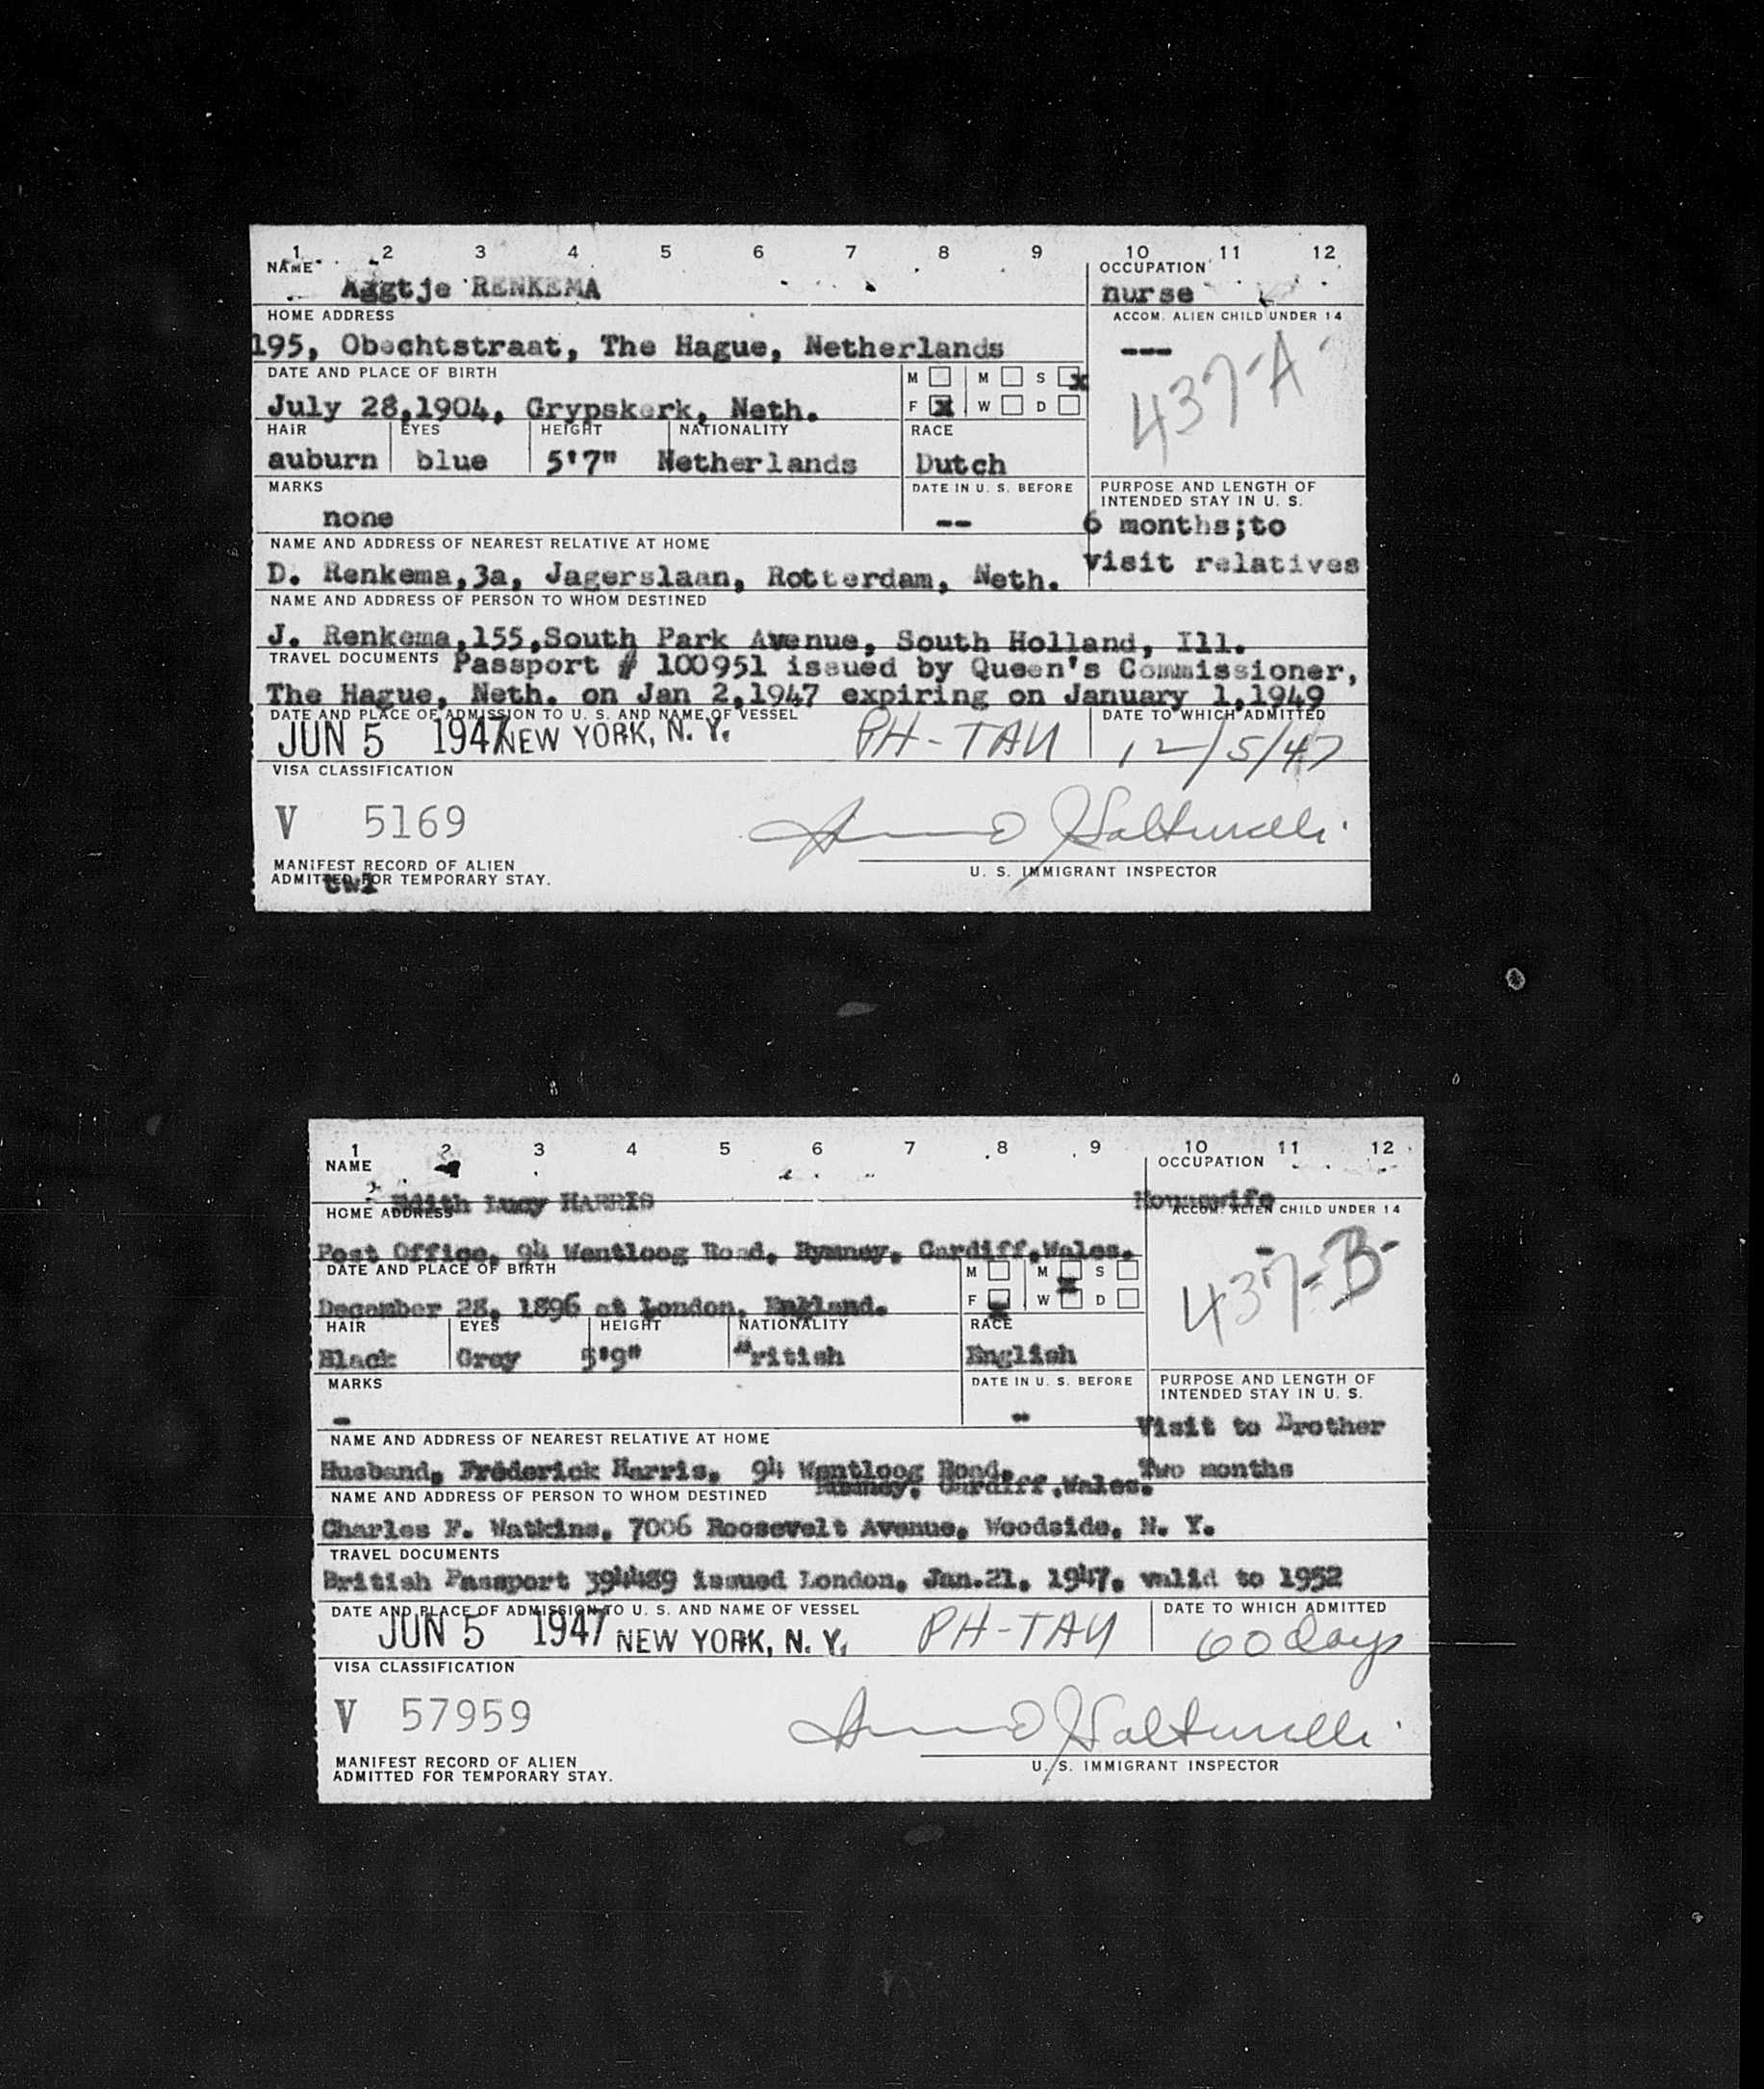 1 2 3 4 5 6 7 8 9 10 11 12
NAME OCCUPATION
Aggtje RENKEMA nurse
HOME ADDRESS ACCOM. ALIEN CHILD UNDER 14
195, Obechtstraat, The Hague, Netherlands ---
437-A
DATE AND PLACE OF BIRTH M M S x
July 28,1904, Grypskerk, Neth. F x W D
HAIR EYES HEIGHT NATIONALITY RACE
auburn blue 5'7" Netherlands Dutch
MARKS DATE IN U. S. BEFORE PURPOSE AND LENGTH OF
INTENDED STAY IN U. S.
none -- 6 months;to
visit relatives
NAME AND ADDRESS OF NEAREST RELATIVE AT HOME
D. Renkema,3a, Jagerslaan, Rotterdam, Neth.
NAME AND ADDRESS OF PERSON TO WHOM DESTINED
J. Renkema,155,South Park Avenue, South Holland, Ill.
TRAVEL DOCUMENTS Passport # 100951 issued by Queen's Commissioner,
The Hague, Neth. on Jan 2,1947 expiring on January 1,1949
DATE AND PLACE OF ADMISSION TO U. S. AND NAME OF VESSEL DATE TO WHICH ADMITTED
JUN 5 1947 NEW YORK, N. Y. PH-TAU 12/5/47
VISA CLASSIFICATION
V 5169
MANIFEST RECORD OF ALIEN
ADMITTED FOR TEMPORARY STAY. U. S. IMMIGRANT INSPECTOR
1 2 3 4 5 6 7 8 9 10 11 12
NAME OCCUPATION
Edith Lucy HARRIS Housewife
HOME ADDRESS ACCOM. ALIEN CHILD UNDER 14
Post Office, 94 Wentloog Road, Rymney, Cardiff,Wales. -
437-B-
DATE AND PLACE OF BIRTH M M x S
December 28, 1896 at London, England. F x W D
HAIR EYES HEIGHT NATIONALITY RACE
Black Grey 5'9" British English
MARKS DATE IN U. S. BEFORE PURPOSE AND LENGTH OF
INTENDED STAY IN U. S.
- - Visit to Brother
NAME AND ADDRESS OF NEAREST RELATIVE AT HOME
Husband, Frederick Harris, 94 Wentloog Road, Two months
Rumney, Cardiff,Wales.
NAME AND ADDRESS OF PERSON TO WHOM DESTINED
Charles F. Watkins, 7006 Roosevelt Avenue, Woodside, N. Y.
TRAVEL DOCUMENTS
British Passport 394489 issued London, Jan.21, 1947, valid to 1952
DATE AND PLACE OF ADMISSION TO U. S. AND NAME OF VESSEL DATE TO WHICH ADMITTED
JUN 5 1947 NEW YORK, N. Y. PH-TAU 60 days
VISA CLASSIFICATION
V 57959
MANIFEST RECORD OF ALIEN
ADMITTED FOR TEMPORARY STAY. U. S. IMMIGRANT INSPECTOR